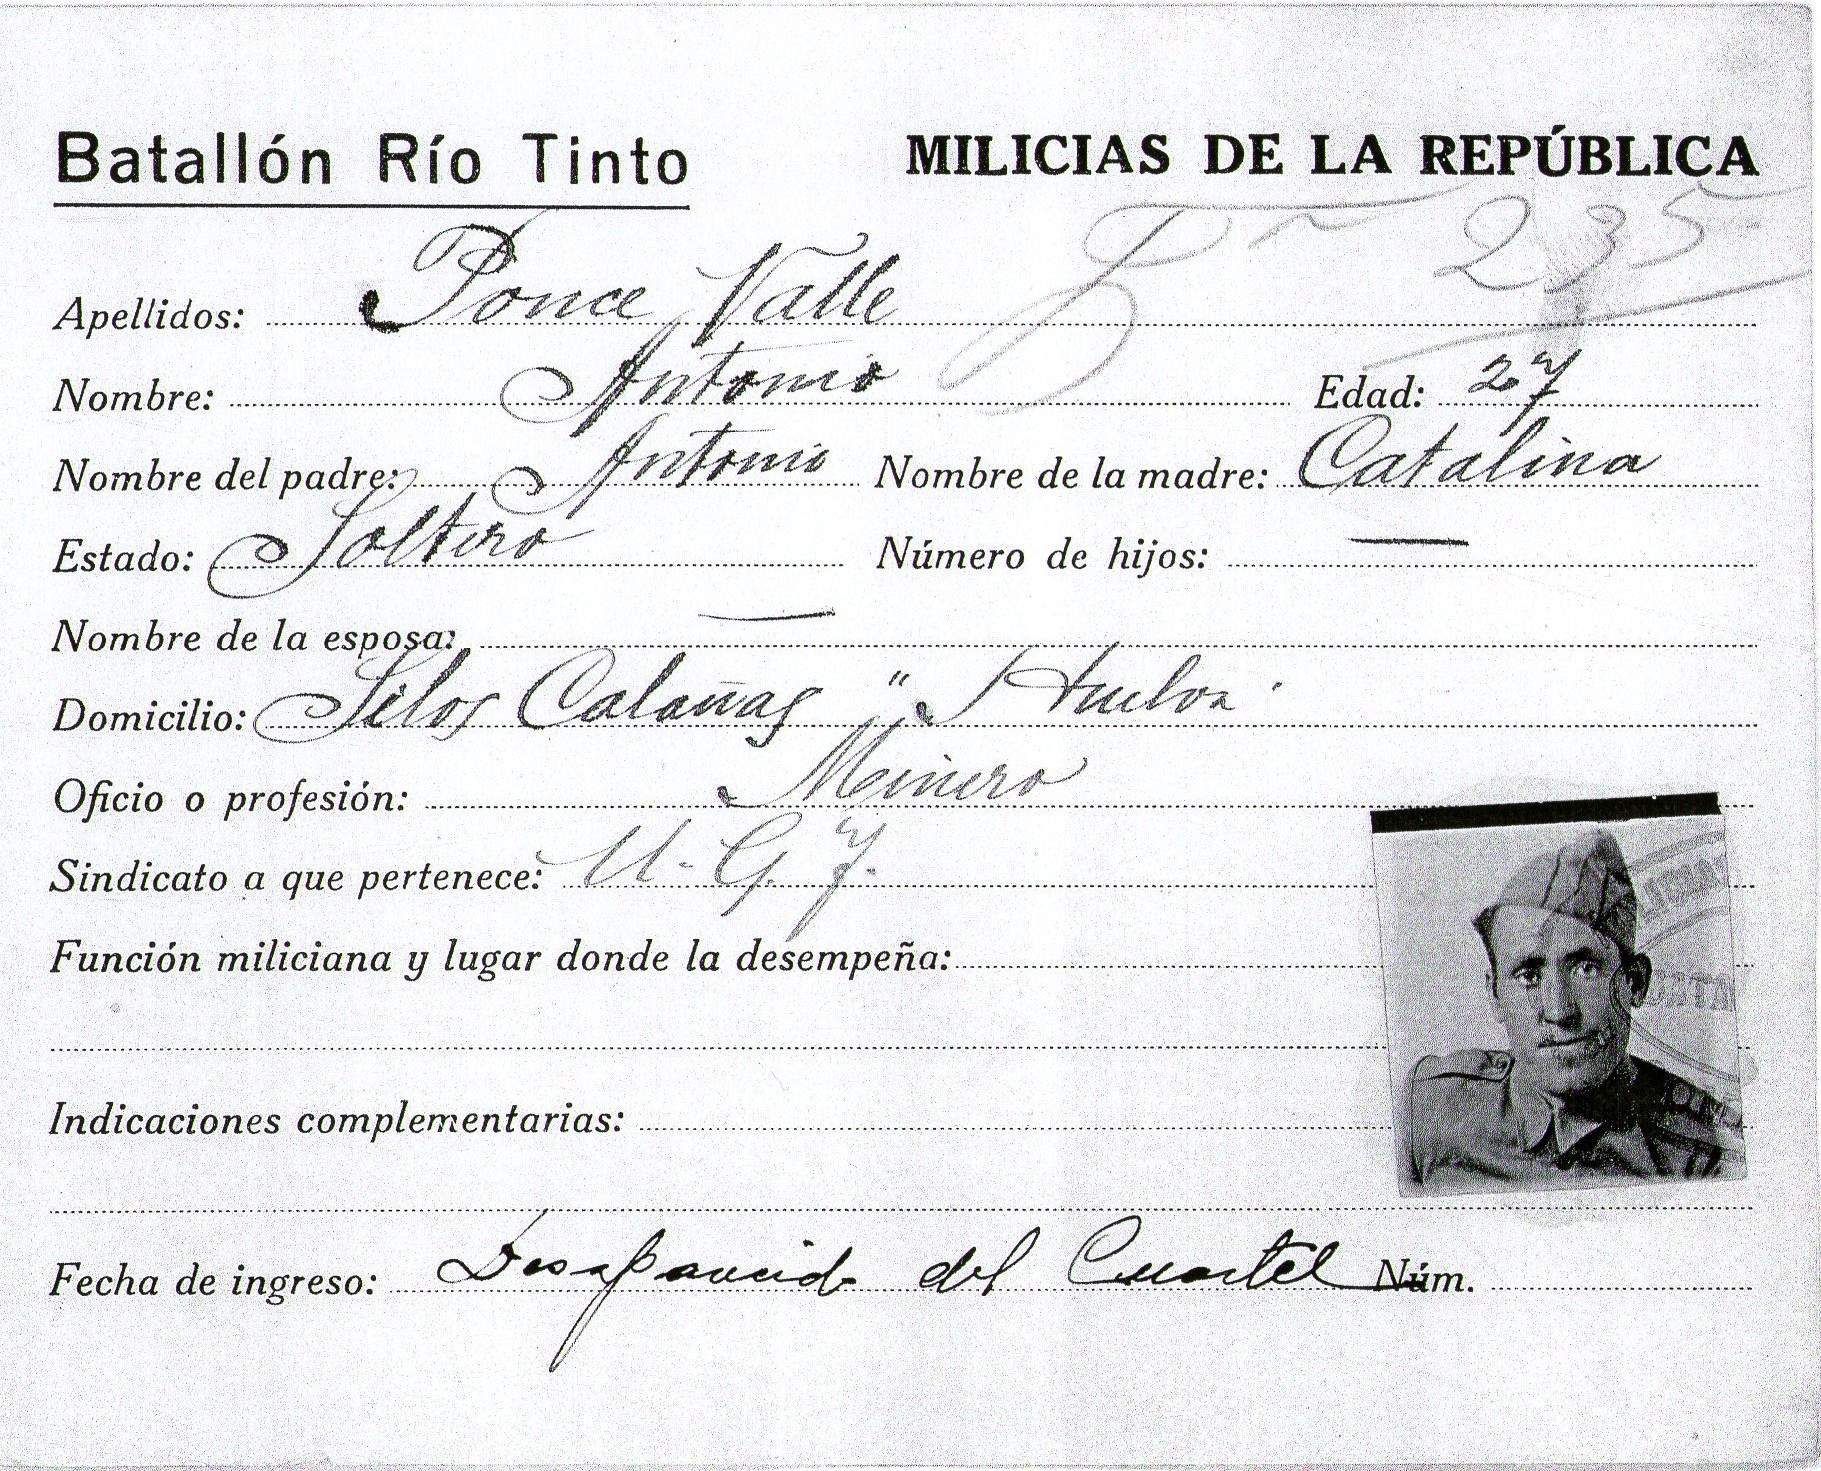 Batallón Río Tinto MILICIAS DE LA REPÚBLICA
235
Apellidos: Ponce Valle
Nombre: Antonio Edad: 27
Nombre del padre: Antonio Nombre de la madre: Catalina
Estado: Soltero Número de hijos: —
Nombre de la esposa: —
Domicilio: Silos Calañas " Huelva
Oficio o profesión: Minero
Sindicato a que pertenece: U-G.T.
Función miliciana y lugar donde la desempeña:
Indicaciones complementarias:
Fecha de ingreso: Desaparecido del Cuartel Núm.